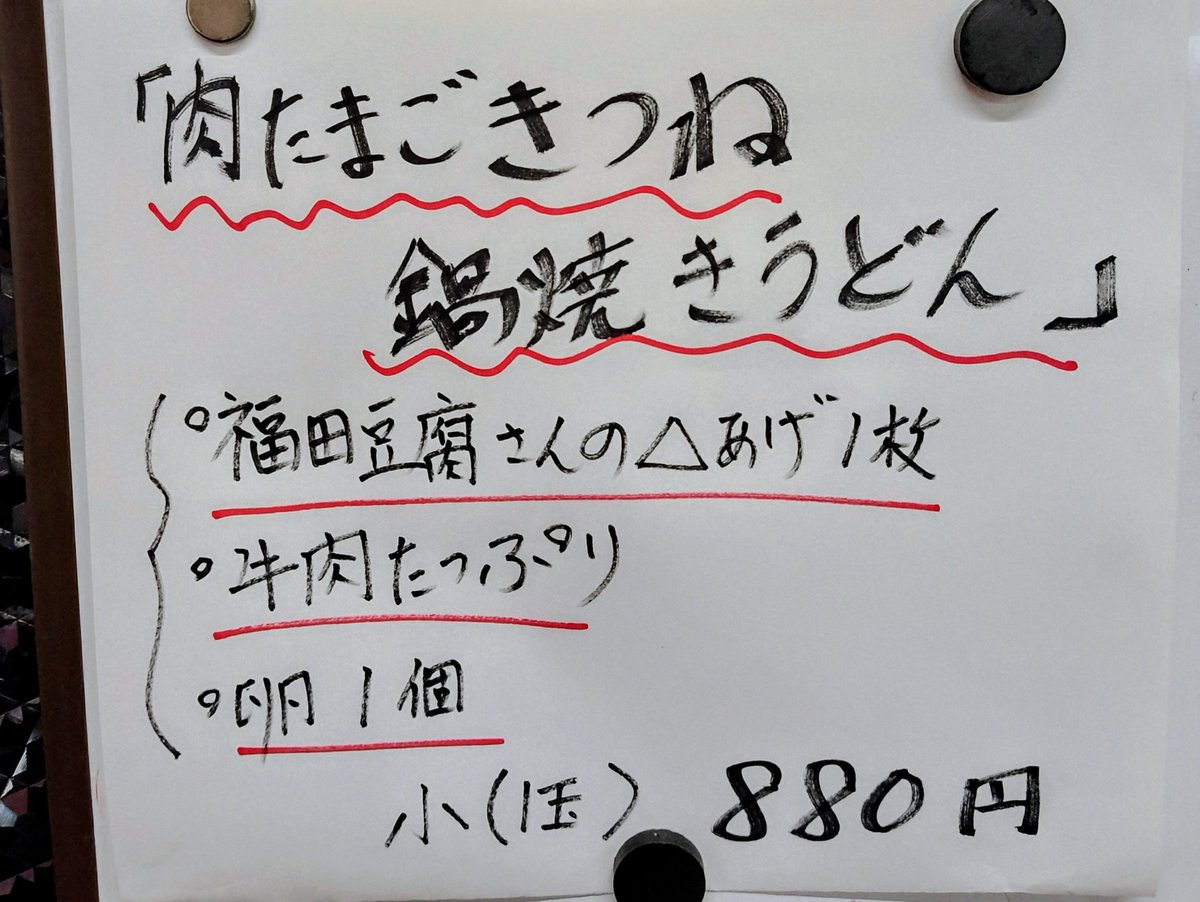 「肉たまごきつね
鍋焼きうどん」
○福田豆腐さんの△あげ1枚
○牛肉たっぷり
○卵1個
小(1玉) 880円